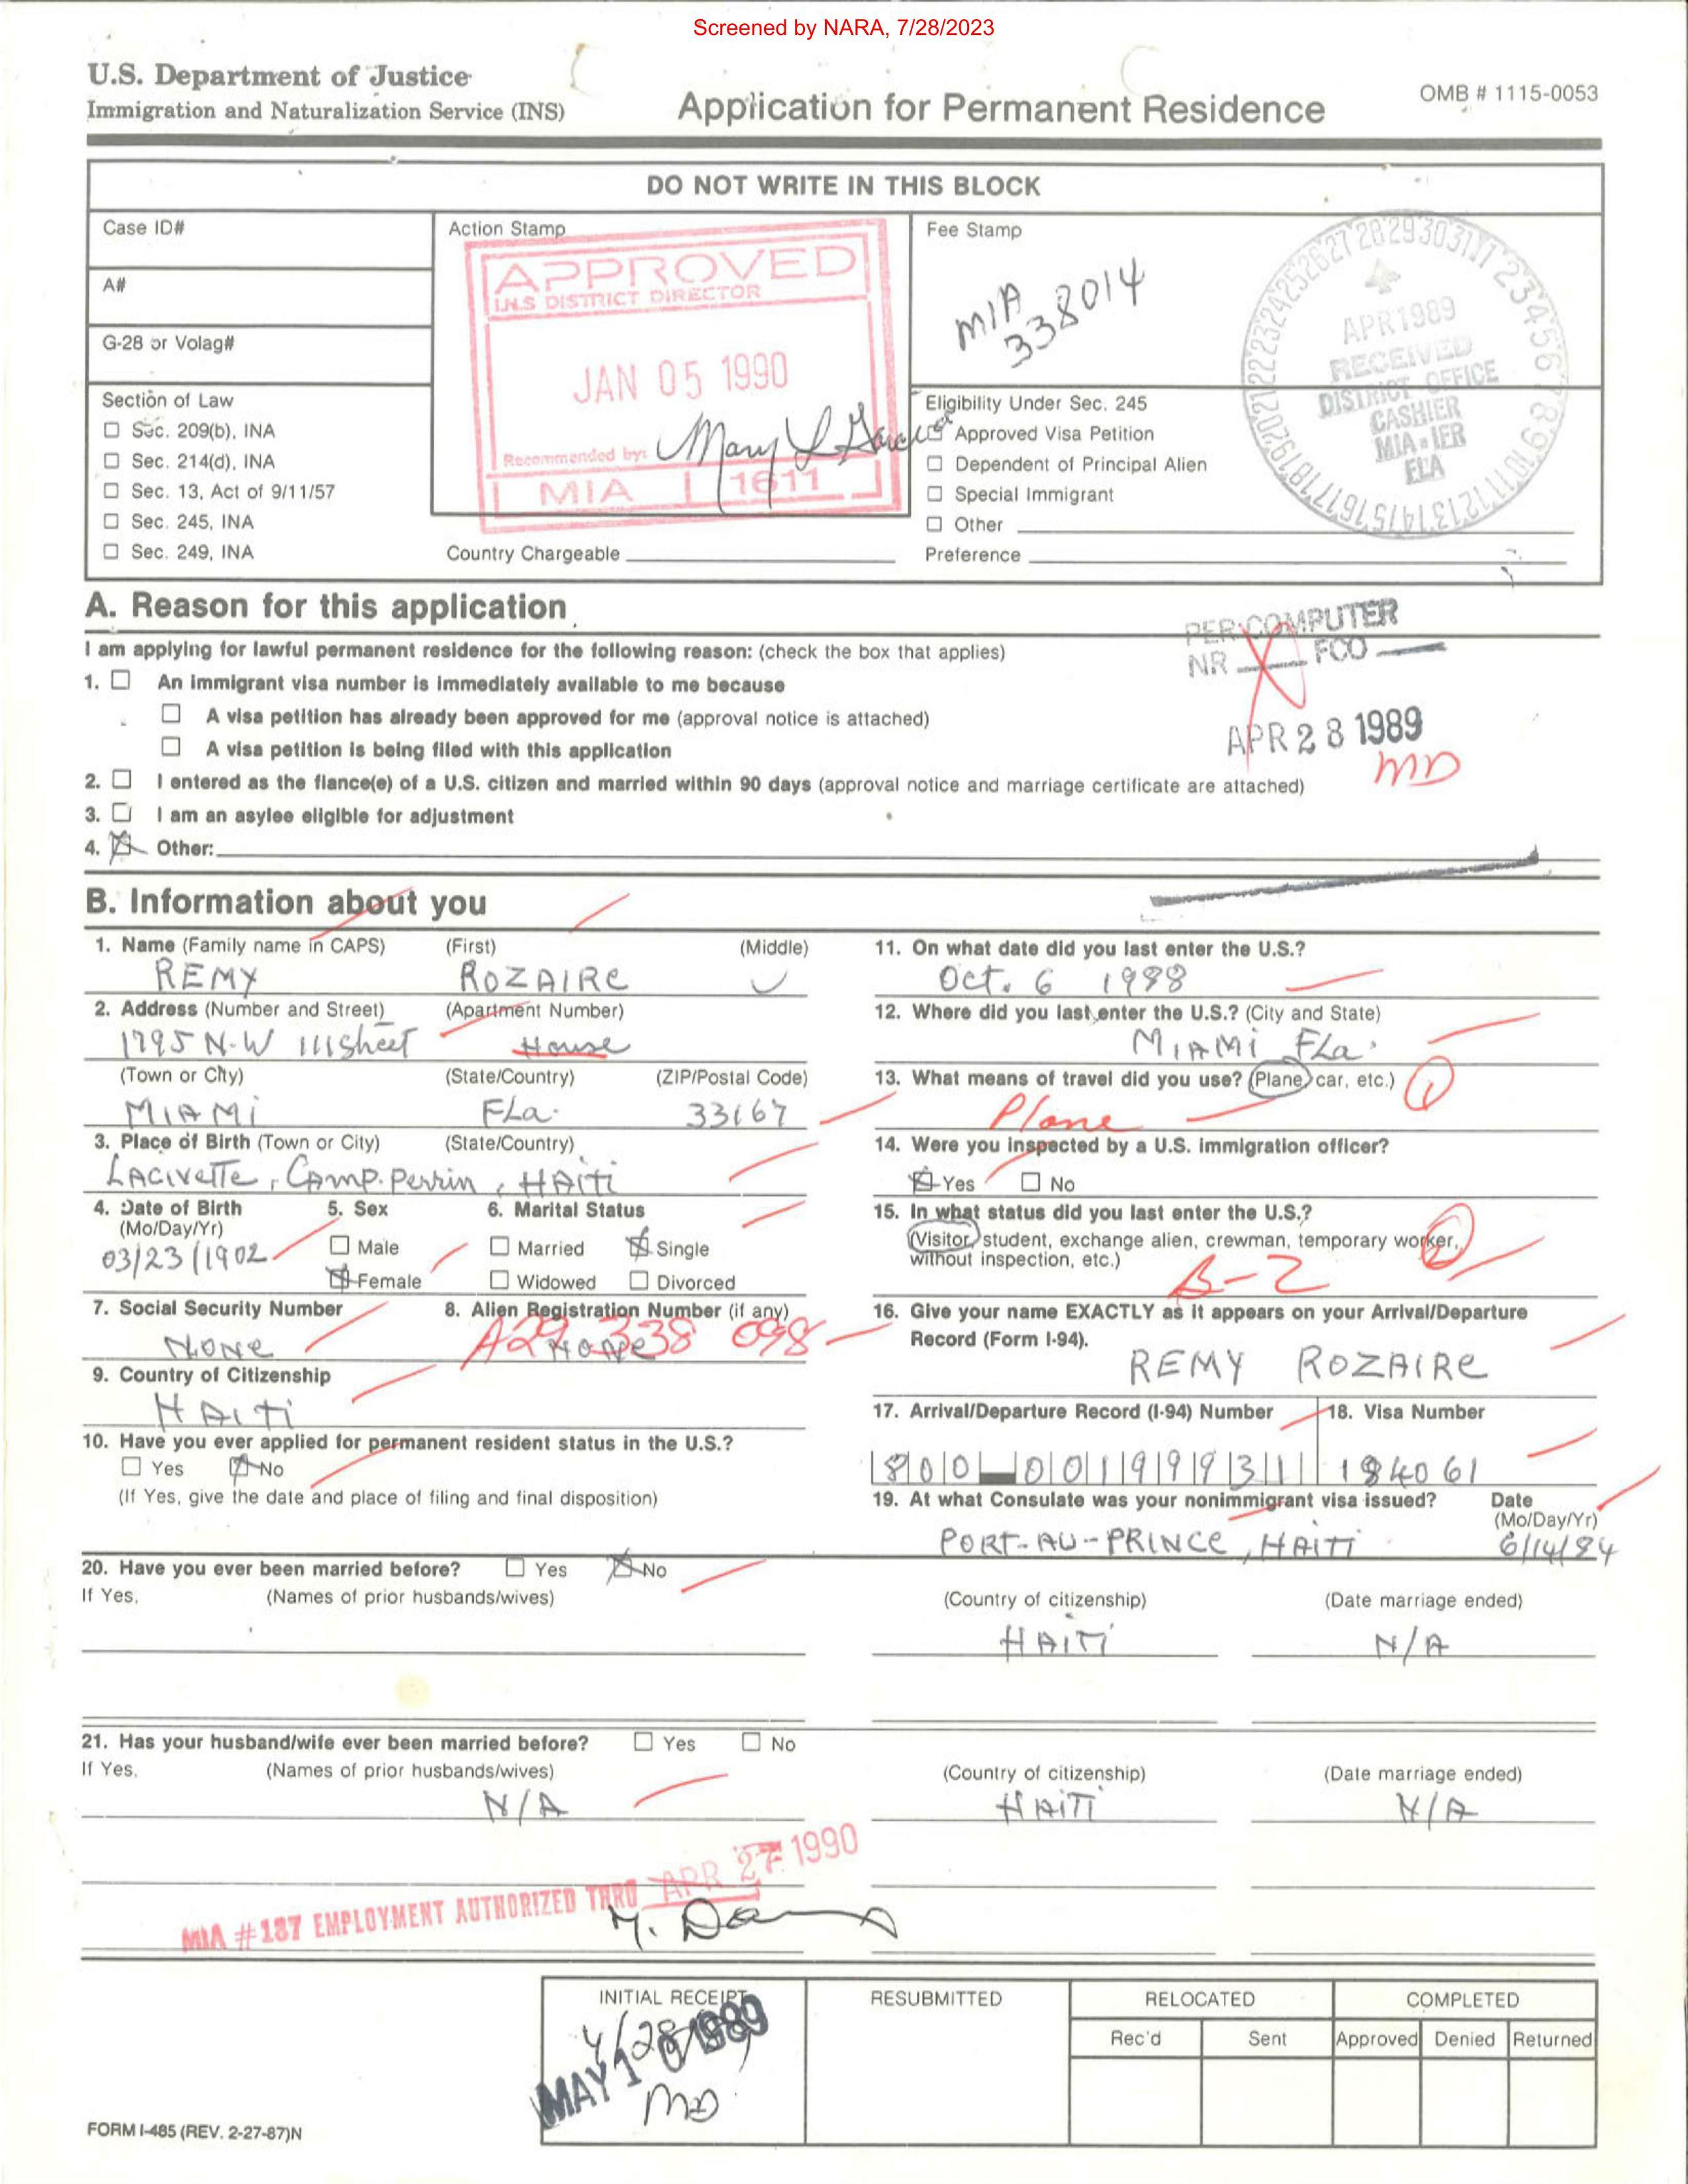 Screened by NARA, 7/28/2023
U.S. Department of Justice
Immigration and Naturalization Service (INS)
Application for Permanent Residence
OMB # 1115-0053
DO NOT WRITE IN THIS BLOCK
Case ID#
A#
G-28 or Volag#
Section of Law
☐ Sec. 209(b), INA
☐ Sec. 214(d), INA
☐ Sec. 13, Act of 9/11/57
☐ Sec. 245, INA
☐ Sec. 249, INA
Action Stamp
APPROVED
I.N.S DISTRICT DIRECTOR
JAN 05 1990
Recommended by: Mary L
MIA 1611
Country Chargeable
Fee Stamp
MIA
338014
APR 1989
RECEIVED
DISTRICT OFFICE
CASHIER
MIA
FLA
Eligibility Under Sec. 245
☐ Approved Visa Petition
☐ Dependent of Principal Alien
☐ Special Immigrant
☐ Other
Preference
A. Reason for this application
PER COMPUTER
NR X FCO
APR 28 1989
MD
I am applying for lawful permanent residence for the following reason: (check the box that applies)
1. ☐ An immigrant visa number is immediately available to me because
☐ A visa petition has already been approved for me (approval notice is attached)
☐ A visa petition is being filed with this application
2. ☐ I entered as the fiance(e) of a U.S. citizen and married within 90 days (approval notice and marriage certificate are attached)
3. ☐ I am an asylee eligible for adjustment
4. ☒ Other:
B. Information about you
1. Name (Family name in CAPS) (First) (Middle)
REMY ROZAIRE
2. Address (Number and Street) (Apartment Number)
1795 N-W 111 street House
(Town or City) (State/Country) (ZIP/Postal Code)
MIAMI FLa. 33167
3. Place of Birth (Town or City) (State/Country)
LACIVETTE, CAMP. Perrin, HAITI
4. Date of Birth (Mo/Day/Yr)
03/23/1902
5. Sex
☐ Male
☒ Female
6. Marital Status
☐ Married ☒ Single
☐ Widowed ☐ Divorced
7. Social Security Number
NONE
8. Alien Registration Number (if any)
NONE
A29 338 098
9. Country of Citizenship
HAITI
10. Have you ever applied for permanent resident status in the U.S.?
☐ Yes ☒ No
(If Yes, give the date and place of filing and final disposition)
11. On what date did you last enter the U.S.?
Oct. 6 1988
12. Where did you last enter the U.S.? (City and State)
MIAMI FLa.
13. What means of travel did you use? (Plane, car, etc.) 1
Plane
14. Were you inspected by a U.S. immigration officer?
☒ Yes ☐ No
15. In what status did you last enter the U.S.?
(Visitor, student, exchange alien, crewman, temporary worker,
without inspection, etc.) 2
B-2
16. Give your name EXACTLY as it appears on your Arrival/Departure
Record (Form I-94).
REMY ROZAIRE
17. Arrival/Departure Record (I-94) Number 18. Visa Number
800-00199931 184061
19. At what Consulate was your nonimmigrant visa issued? Date (Mo/Day/Yr)
PORT-AU-PRINCE, HAITI 6/14/84
20. Have you ever been married before? ☐ Yes ☒ No
If Yes, (Names of prior husbands/wives) (Country of citizenship) (Date marriage ended)
HAITI N/A
21. Has your husband/wife ever been married before? ☐ Yes ☐ No
If Yes, (Names of prior husbands/wives) (Country of citizenship) (Date marriage ended)
N/A HAITI N/A
MIA #187 EMPLOYMENT AUTHORIZED THRU APR 27 1990
INITIAL RECEIPT
4/28/89
MAY 1 0 1989
MD
RESUBMITTED
RELOCATED
Rec'd Sent
COMPLETED
Approved Denied Returned
FORM I-485 (REV. 2-27-87)N